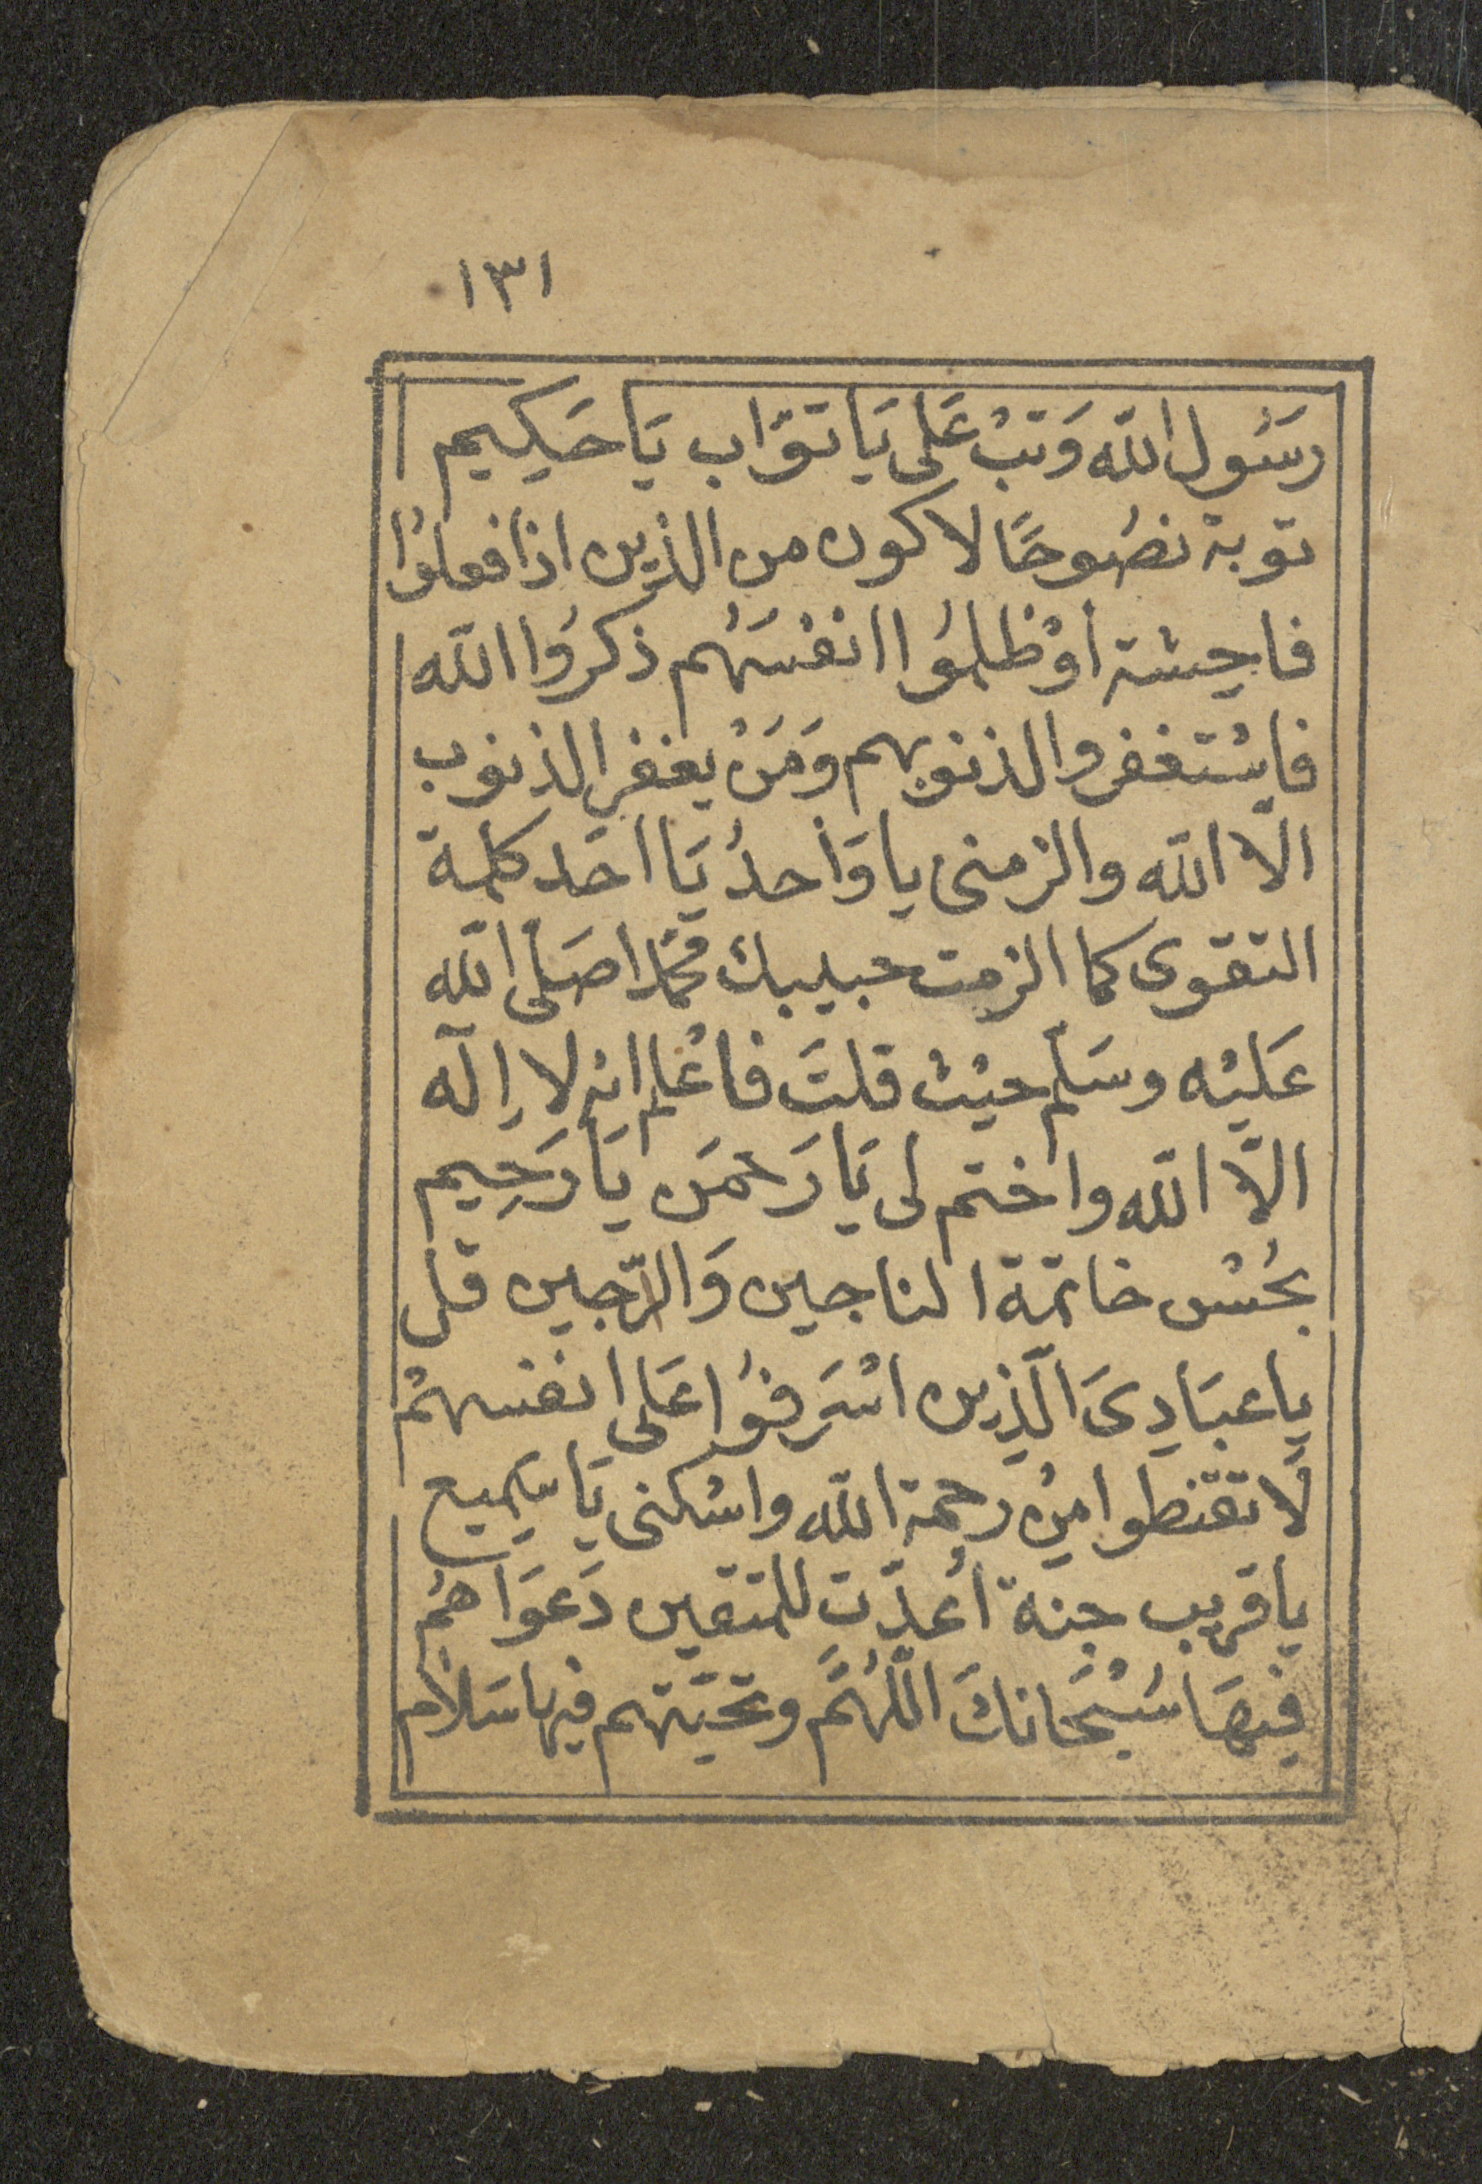 ١٣١
رَسُولِ اللّٰه وَتبْ عَلى يَا تَوّاب يَا حَكِيم
توبة نصُوحًا لاكون من الذِين اذا فعلوُا
فاحِشة أوْ ظلمُوا انفسَهُم ذكرُوا اللّٰه
فاسْتغفروا لذنوبهم وَمَنْ يغفر الذنوب
الّا اللّٰه والزمنى يا وَاحدُ يَا احَد كلمة
التقوى كما الزمت حبيبك محَمّدا صَلّى اللّٰه
عَليْه وسَلّم حيْث قلتَ فاعْلم انه لا إِلٰه
الّا اللّٰه واختم لى يَا رَحمَن يَا رَحِيم
بحُسْن خاتمة الناجين وَالرّاجين قل
يا عبَادِىَ الّذِين اسْرَفوُا عَلى انفسهمْ
لَا تقنطوا مِنْ رحمة اللّٰه واسْكنى يَا سَمِيع
يا قريب جنة اُعدّت للمتقين دَعوَاهُم
فِيهَا سُبْحَانكَ اللّٰهُمَّ وتحيّتهم فيها سَلَام